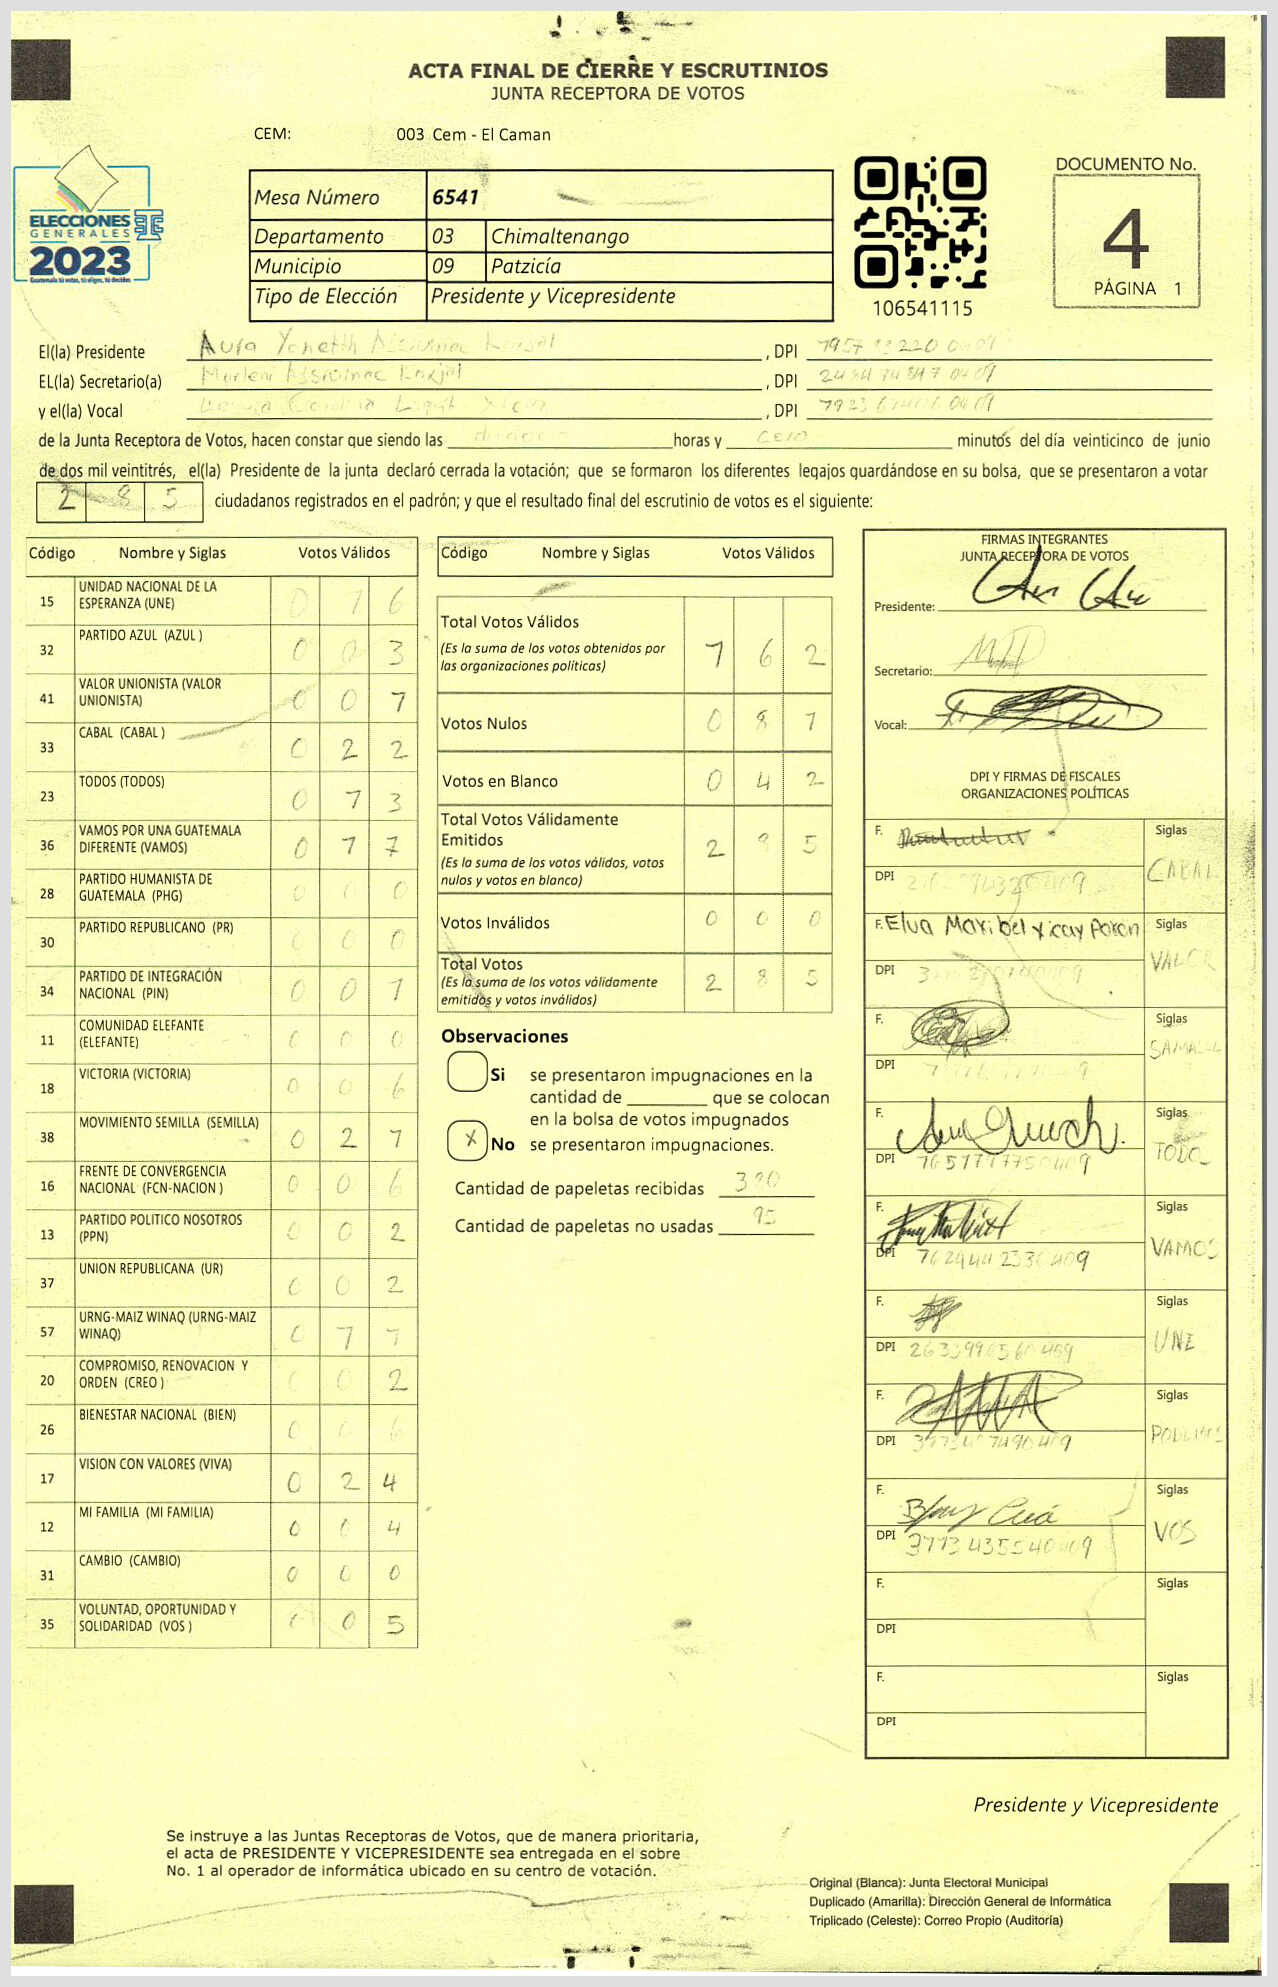 ACTA FINAL DE CIERRE Y ESCRUTINIOS
JUNTA RECEPTORA DE VOTOS
CEM: 003 Cem - El Caman
ELECCIONES
GENERALES
2023
Guatemala tú votas, tú eliges, tú decides
Mesa Número 6541
Departamento 03 Chimaltenango
Municipio 09 Patzicía
Tipo de Elección Presidente y Vicepresidente
106541115
DOCUMENTO No.
4
PÁGINA 1
El(la) Presidente Aura Yaneth , DPI
EL(la) Secretario(a) Marleni , DPI
y el(la) Vocal Carolina , DPI
de la Junta Receptora de Votos, hacen constar que siendo las horas y cero minutos del día veinticinco de junio
de dos mil veintitrés, el(la) Presidente de la junta declaró cerrada la votación; que se formaron los diferentes legajos guardándose en su bolsa, que se presentaron a votar
2 8 5 ciudadanos registrados en el padrón; y que el resultado final del escrutinio de votos es el siguiente:
Código Nombre y Siglas Votos Válidos
15 UNIDAD NACIONAL DE LA ESPERANZA (UNE) 0 1 6
32 PARTIDO AZUL (AZUL ) 0 0 3
41 VALOR UNIONISTA (VALOR UNIONISTA) 0 0 7
33 CABAL (CABAL ) 0 2 2
23 TODOS (TODOS) 0 1 3
36 VAMOS POR UNA GUATEMALA DIFERENTE (VAMOS) 0 1 7
28 PARTIDO HUMANISTA DE GUATEMALA (PHG) 0 0 0
30 PARTIDO REPUBLICANO (PR) 0 0 0
34 PARTIDO DE INTEGRACIÓN NACIONAL (PIN) 0 0 1
11 COMUNIDAD ELEFANTE (ELEFANTE) 0 0 0
18 VICTORIA (VICTORIA) 0 0 6
38 MOVIMIENTO SEMILLA (SEMILLA) 0 2 1
16 FRENTE DE CONVERGENCIA NACIONAL (FCN-NACION ) 0 0 6
13 PARTIDO POLITICO NOSOTROS (PPN) 0 0 2
37 UNION REPUBLICANA (UR) 0 0 2
57 URNG-MAIZ WINAQ (URNG-MAIZ WINAQ) 0 1 1
20 COMPROMISO, RENOVACION Y ORDEN (CREO ) 0 0 2
26 BIENESTAR NACIONAL (BIEN) 0 0
17 VISION CON VALORES (VIVA) 0 2 4
12 MI FAMILIA (MI FAMILIA) 0 0 4
31 CAMBIO (CAMBIO) 0 0 0
35 VOLUNTAD, OPORTUNIDAD Y SOLIDARIDAD (VOS ) 0 0 5
Código Nombre y Siglas Votos Válidos
Total Votos Válidos
(Es la suma de los votos obtenidos por las organizaciones políticas) 1 6 2
Votos Nulos 0 8 1
Votos en Blanco 0 4 2
Total Votos Válidamente Emitidos
(Es la suma de los votos válidos, votos nulos y votos en blanco) 2 5
Votos Inválidos 0 0 0
Total Votos
(Es la suma de los votos válidamente emitidos y votos inválidos) 2 8 5
Observaciones
Si se presentaron impugnaciones en la
cantidad de ________ que se colocan
en la bolsa de votos impugnados
X No se presentaron impugnaciones.
Cantidad de papeletas recibidas
Cantidad de papeletas no usadas 95
FIRMAS INTEGRANTES
JUNTA RECEPTORA DE VOTOS
Presidente:
Secretario:
Vocal:
DPI Y FIRMAS DE FISCALES
ORGANIZACIONES POLÍTICAS
F. Siglas
DPI CABAL
F. Elva Maribel Xicay Poron Siglas
DPI VALOR
F. Siglas
DPI
F. Siglas
DPI TODOS
F. Siglas
DPI VAMOS
F. Siglas
DPI UNE
F.
DPI Siglas
PODEMOS
F. Siglas
DPI VOS
F. Siglas
DPI
F. Siglas
DPI
Presidente y Vicepresidente
Se instruye a las Juntas Receptoras de Votos, que de manera prioritaria,
el acta de PRESIDENTE Y VICEPRESIDENTE sea entregada en el sobre
No. 1 al operador de informática ubicado en su centro de votación.
Original (Blanca): Junta Electoral Municipal
Duplicado (Amarilla): Dirección General de Informática
Triplicado (Celeste): Correo Propio (Auditoría)